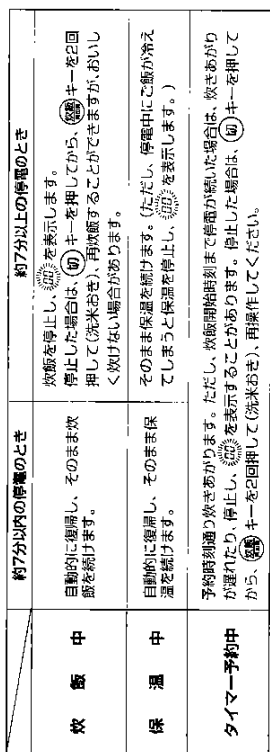 約7分以内の停電のとき
約7分以上の停電のとき
炊飯中
自動的に復帰し、そのまま炊
飯を続けます。
炊飯を停止し、0:00を表示します。
停止した場合は、切キーを押してから、炊飯キーを2回
押して(洗米おき)、再炊飯することができますが、おいし
く炊けない場合があります。
保温中
自動的に復帰し、そのまま保
温を続けます。
そのまま保温を続けます。(ただし、停電中にご飯が冷え
てしまうと保温を停止し、0:00を表示します。)
タイマー予約中
予約時刻通り炊きあがります。ただし、炊飯開始時刻まで停電が続いた場合は、炊きあがり
が遅れたり、停止し、0:00を表示することがあります。停止した場合は、切キーを押して
から、炊飯キーを2回押して(洗米おき)、再操作してください。